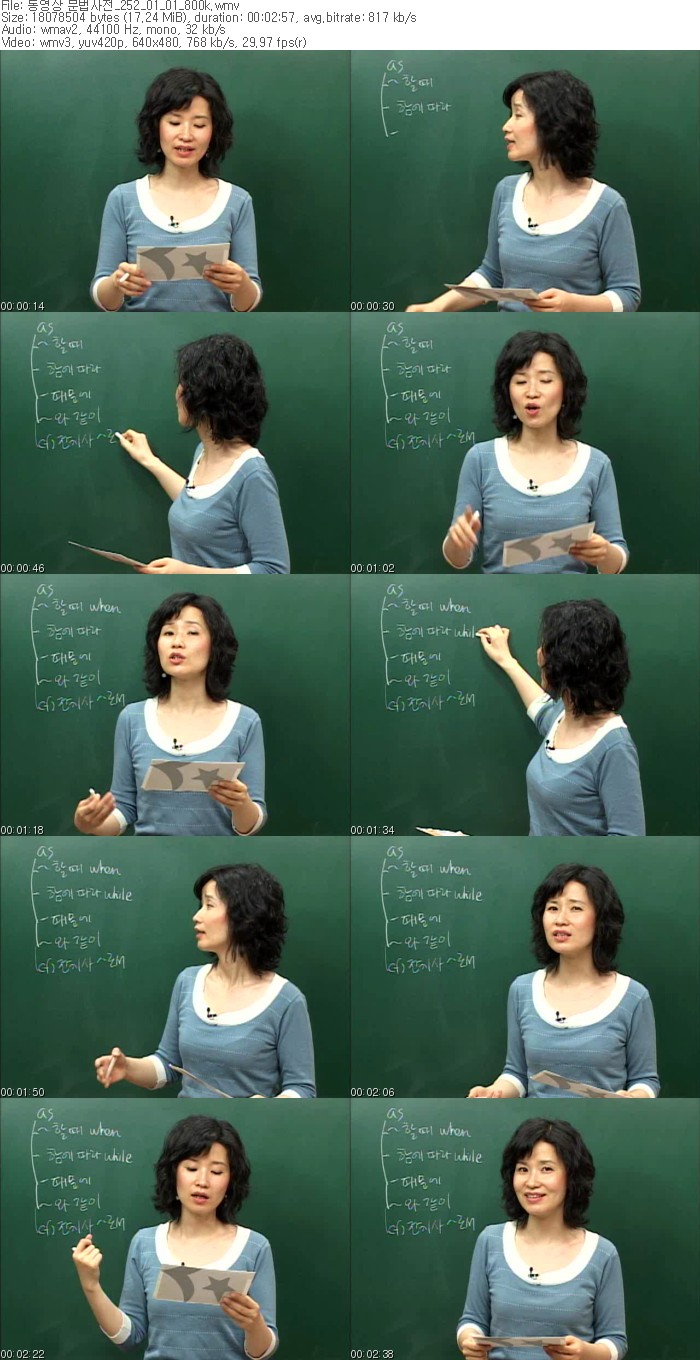 File: 동영상 문법사전_252_01_01_800k.wmv
Size: 18078504 bytes (17.24 MiB), duration: 00:02:57, avg.bitrate: 817 kb/s
Audio: wmav2, 44100 Hz, mono, 32 kb/s
Video: wmv3, yuv420p, 640x480, 768 kb/s, 29.97 fps(r)
00:00:14
as
~ 할때
- 함에 따라
00:00:30
as
~ 할때
- 함에 따라
- 때문에
~ 와 같이
cf) 전치사 ~로
00:00:46
as
~ 할때
- 함에 따라
- 때문에
~ 와 같이
cf) 전치사 ~로서
00:01:02
as
~ 할때 when
- 함에 따라
- 때문에
~ 와 같이
cf) 전치사 ~로서
00:01:18
as
~ 할때 when
- 함에 따라 whil
- 때문에
~ 와 같이
cf) 전치사 ~로서
00:01:34
as
~ 할때 when
- 함에 따라 while
- 때문에
~ 와 같이
cf) 전치사 ~로서
00:01:50
as
~ 할때 when
- 함에 따라 while
- 때문에
~ 와 같이
cf) 전치사 ~로서
00:02:06
as
~ 할때 when
- 함에 따라 while
- 때문에
~ 와 같이
cf) 전치사 ~로서
00:02:22
as
~ 할때 when
- 함에 따라 while
- 때문에
~ 와 같이
cf) 전치사 ~로서
00:02:38